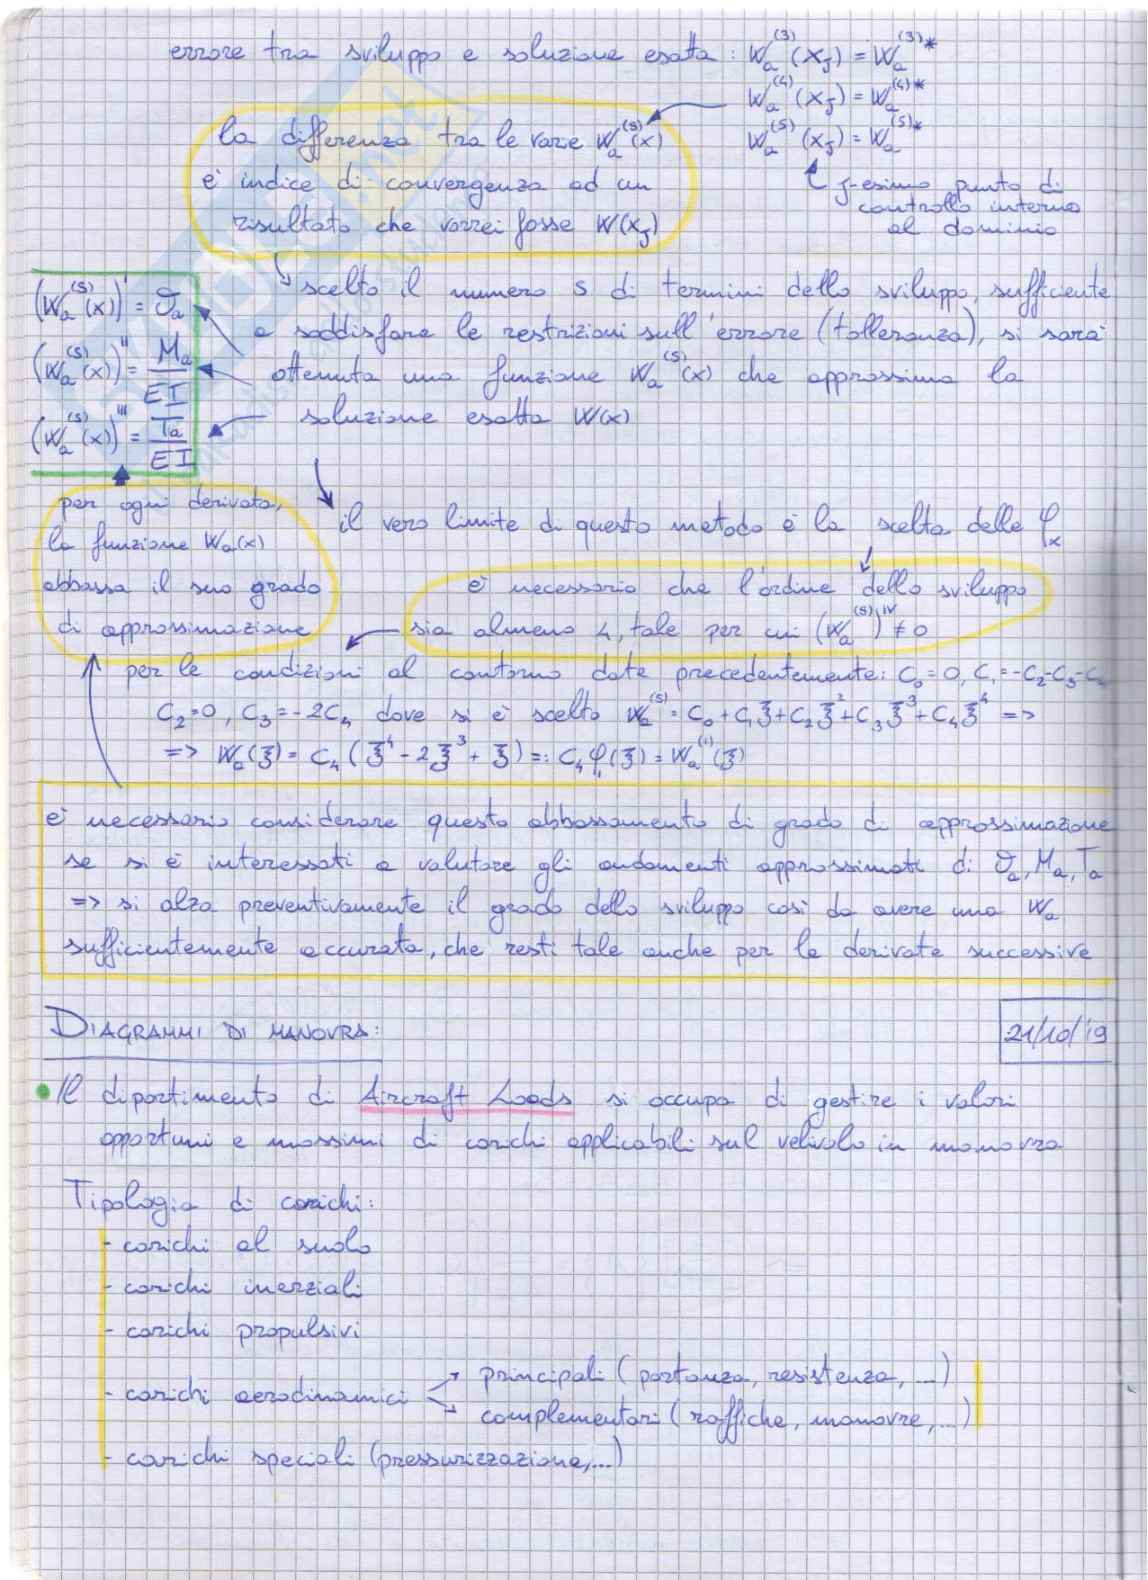 errore tra sviluppo e soluzione esatta : Wa^(3)(xj) = Wa^(3)*
Wa^(4)(xj) = Wa^(4)*
Wa^(5)(xj) = Wa^(5)*
la differenza tra le varie Wa^(s)(x)
è indice di convergenza ad un
risultato che vorrei fosse W(xj)
j-esimo punto di
controllo interno
al dominio
(Wa^(s)(x))' = ϑa
(Wa^(s)(x))'' = Ma/EI
(Wa^(s)(x))''' = Ta/EI
scelto il numero s di termini dello sviluppo, sufficiente
a soddisfare le restrizioni sull'errore (tolleranza), si sarà
ottenuta una funzione Wa^(s)(x) che approssima la
soluzione esatta W(x)
per ogni derivata,
la funzione Wa(x)
abbassa il suo grado
di approssimazione
il vero limite di questo metodo è la scelta delle φx
è necessario che l'ordine dello sviluppo
sia almeno 4, tale per cui (Wa^(s))^IV ≠ 0
per le condizioni al contorno date precedentemente: C0=0, C1=-C2-C3-C4
C2=0, C3=-2C4 dove si è scelto Wa^(s) = C0+C1ξ+C2ξ²+C3ξ³+C4ξ⁴ =>
=> Wa(ξ) = C4(ξ⁴-2ξ³+ξ) =: C4φ1(ξ) = Wa^(1)(ξ)
è necessario considerare questo abbassamento di grado di approssimazione
se si è interessati a valutare gli andamenti approssimati di ϑa, Ma, Ta
=> si alza preventivamente il grado dello sviluppo così da avere una Wa
sufficientemente accurata, che resti tale anche per le derivate successive
DIAGRAMMI DI MANOVRA:
21/10/'19
Il dipartimento di Aircraft Loads si occupa di gestire i valori
opportuni e massimi di carichi applicabili sul velivolo in manovra
Tipologia di carichi:
- carichi al suolo
- carichi inerziali
- carichi propulsivi
- carichi aerodinamici
principali (portanza, resistenza, ...)
complementari (raffiche, manovre, ...)
- carichi speciali (pressurizzazione, ...)